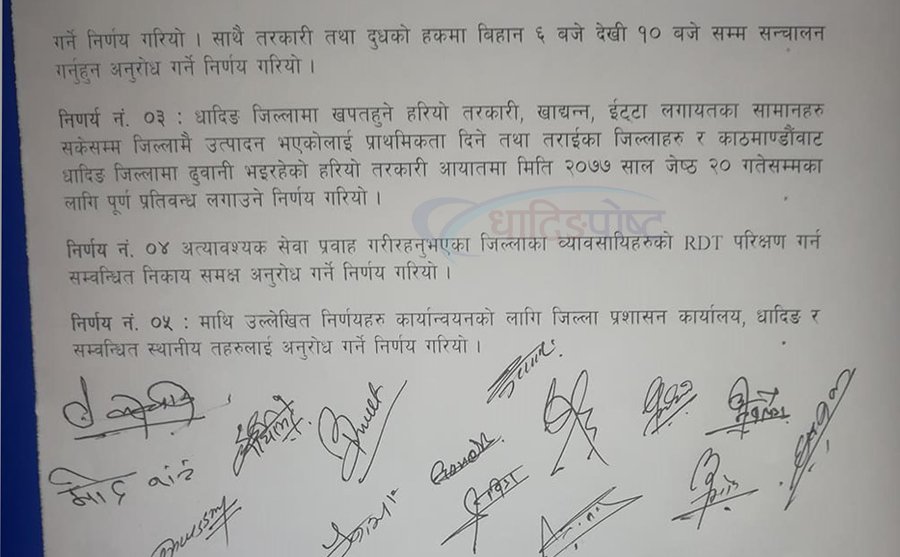 गर्ने निर्णय गरियो । साथै तरकारी तथा दुधको हकमा बिहान ६ बजे देखी १० बजे सम्म सन्चालन
गर्नुहुन अनुरोध गर्ने निर्णय गरियो ।
निणर्य नं. ०३ : धादिङ जिल्लामा खपतहुने हरियो तरकारी, खाद्यन्न, ईट्टा लगायतका सामानहरु
सकेसम्म जिल्लामै उत्पादन भएकोलाई प्राथमिकता दिने तथा तराईका जिल्लाहरु र काठमाण्डौंवाट
धादिङ जिल्लामा ढुवानी भइरहेको हरियो तरकारी आयातमा मिति २०७७ साल जेष्ठ २० गतेसम्मका
लागि पूर्ण प्रतिवन्ध लगाउने निर्णय गरियो ।
धादिङपोष्ट
निर्णय नं. ०४ अत्यावश्यक सेवा प्रवाह गरीरहनुभएका जिल्लाका व्यावसायिहरुको RDT परिक्षण गर्न
सम्वन्धित निकाय समक्ष अनुरोध गर्ने निर्णय गरियो ।
निर्णय नं. ०५ : माथि उल्लेखित निर्णयहरु कार्यान्वयनको लागि जिल्ला प्रशासन कार्यालय, धादिङ र
सम्वन्धित स्थानीय तहरुलाई अनुरोध गर्ने निर्णय गरियो ।